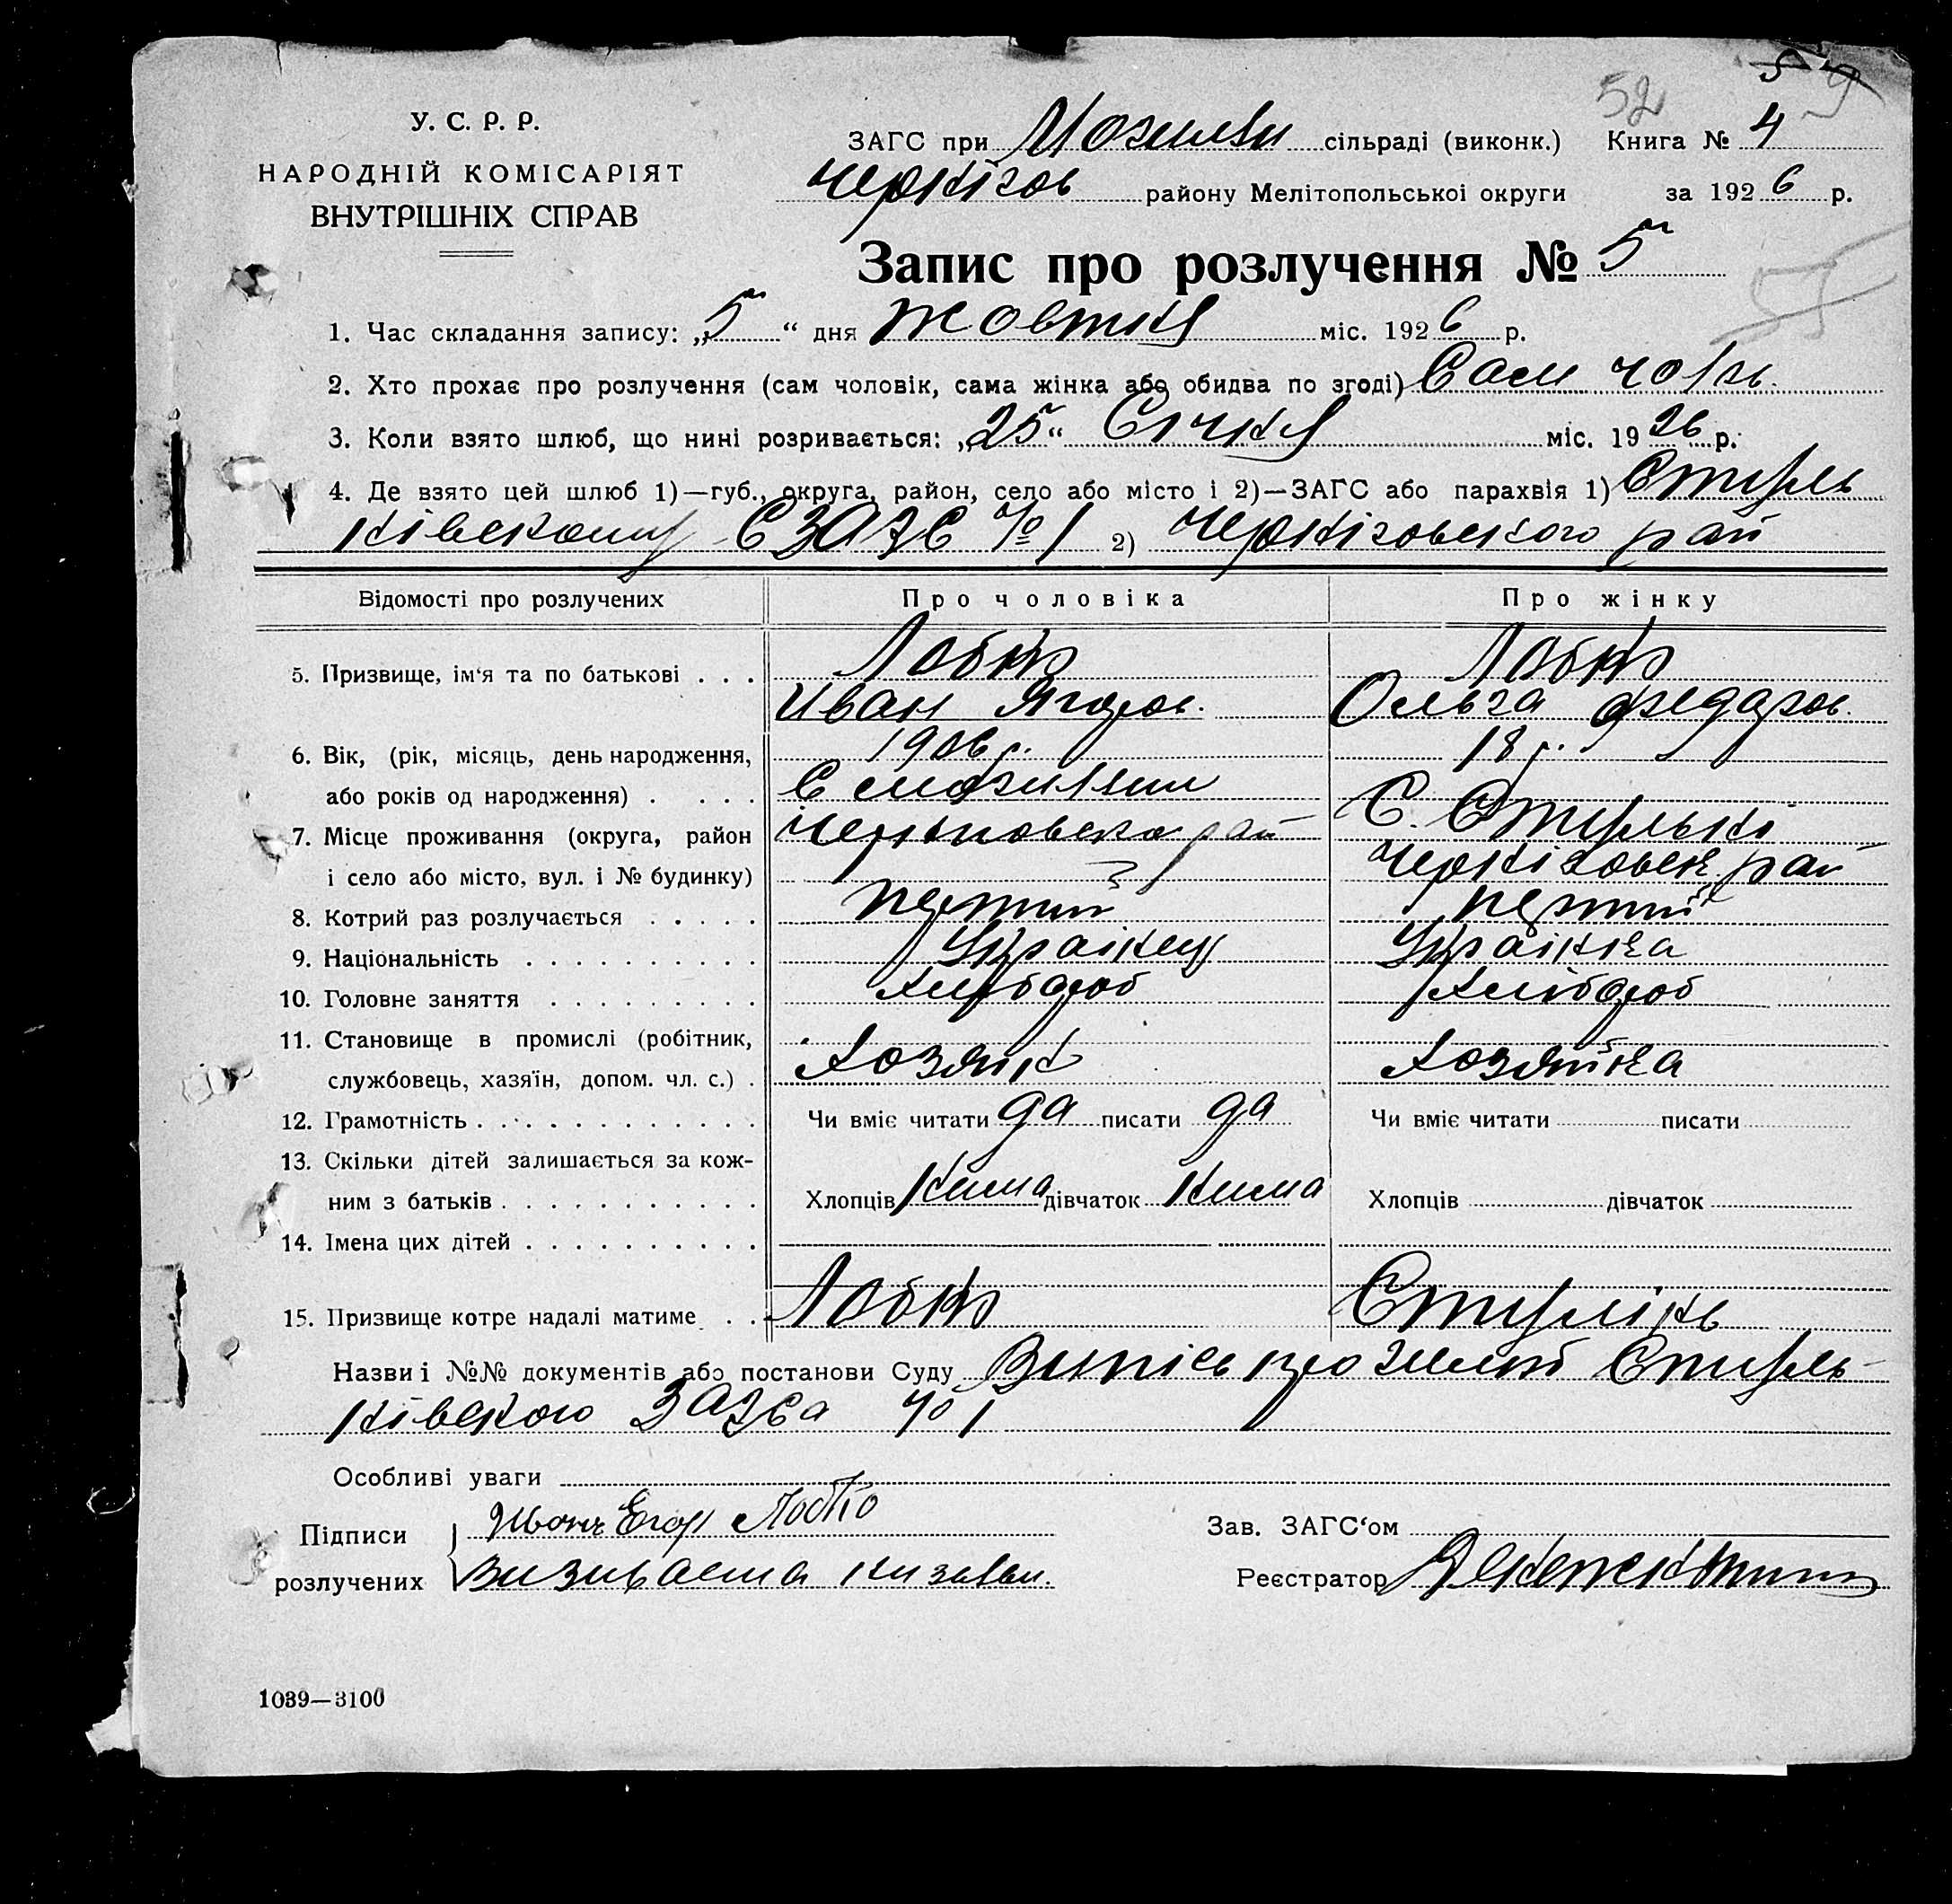 52 9
У. С. Р. Р.
НАРОДНІЙ КОМІСАРІЯТ
ВНУТРІШНІХ СПРАВ
ЗАГС при сільраді (виконк.) Книга № 4
району Мелітопольської округи за 1926 р.
Запис про розлучення № 5
1. Час складання запису: „5“ дня Жовтня міс. 1926 р.
2. Хто прохає про розлучення (сам чоловік, сама жінка або обидва по згоді) Сам
3. Коли взято шлюб, що нині розривається: „25“ Січня міс. 1926 р.
4. Де взято цей шлюб 1)—губ., округа, район, село або місто і 2)—ЗАГС або парахвія 1) Стуль
ківському СЗАГС № 1 2) рай
Відомості про розлучених Про чоловіка Про жінку
5. Призвище, ім'я та по батькові . . . Лобко Лобко
Иван Ягоров. Ольга Федаров.
6. Вік, (рік, місяць, день народження, 1906 р. 18 р.
або років од народження) . . . .
7. Місце проживання (округа, район рай С.
і село або місто, вул. і № будинку) рай
8. Котрий раз розлучається . . . . . Перший Перший
9. Національність . . . . . . . . . . Українец Українка
10. Головне заняття . . . . . . . . . Хлібороб Хлібороб
11. Становище в промислі (робітник,
службовець, хазяїн, допом. чл. с.) . Хозяїн Хозяйка
12. Грамотність . . . . . . . . . . . . Чи вміє читати да писати да Чи вміє читати писати
13. Скільки дітей залишається за кож-
ним з батьків . . . . . . . . . . . Хлопців Нима дівчаток Нима Хлопців дівчаток
14. Імена цих дітей . . . . . . . . . .
15. Призвище котре надалі матиме . . Лобко
Назви і №№ документів або постанови Суду Випісь про шлюб Стуль-
ківского ЗАГСа № 1
Особливі уваги
Підписи Иванъ Егор Лобко Зав. ЗАГС'ом
розлучених Реєстратор
1039—3100